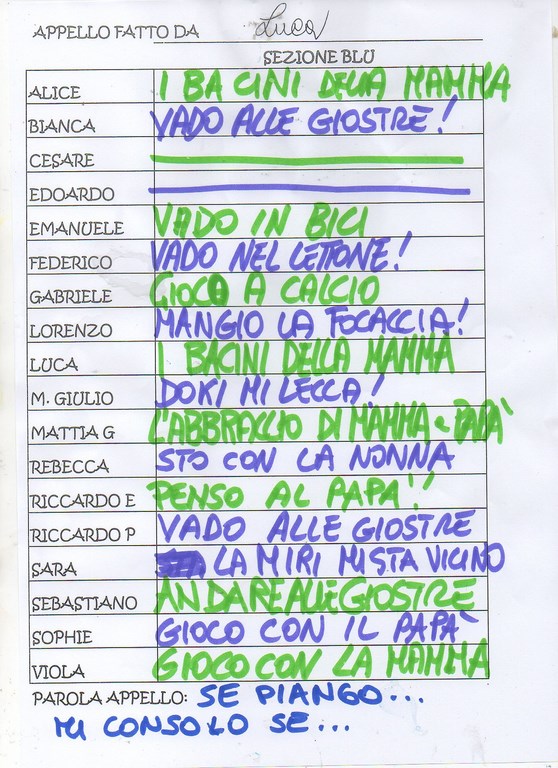 APPELLO FATTO DA Luca
SEZIONE BLU
ALICE I BACINI DELLA MAMMA
BIANCA VADO ALLE GIOSTRE!
CESARE
EDOARDO
EMANUELE VADO IN BICI
FEDERICO VADO NEL LETTONE!
GABRIELE GIOCO A CALCIO
LORENZO MANGIO LA FOCACCIA!
LUCA I BACINI DELLA MAMMA
M. GIULIO DOKI MI LECCA!
MATTIA G L'ABBRACCIO DI MAMMA E PAPÀ
REBECCA STO CON LA NONNA
RICCARDO E PENSO AL PAPA'!
RICCARDO P VADO ALLE GIOSTRE
SARA LA MIRI MI STA VICINO
SEBASTIANO ANDARE ALLE GIOSTRE
SOPHIE GIOCO CON IL PAPÀ
VIOLA GIOCO CON LA MAMMA
PAROLA APPELLO: SE PIANGO...
MI CONSOLO SE...